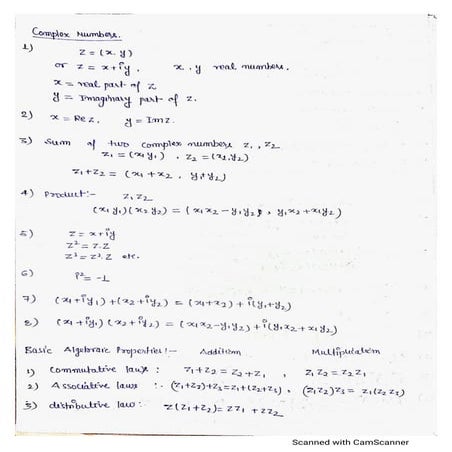 Complex Numbers.
1) z = (x.y)
or z = x+iy, x.y real numbers.
x = real part of z
y = Imaginary part of z.
2) x = Rez, y = Imz.
3) Sum of two complex numbers z1, z2
z1 = (x1y1), z2 = (x2,y2)
z1+z2 = (x1+x2, y1+y2)
4) Product:- z1z2
(x1y1)(x2y2) = (x1x2-y1y2, y1x2+x1y2)
5) z = x+iy
z² = z.z
z³ = z².z etc.
6) i² = -1
7) (x1+iy1)+(x2+iy2) = (x1+x2)+i(y1+y2)
8) (x1+iy1)(x2+iy2) = (x1x2-y1y2)+i(y1x2+x1y2)
Basic Algebraic Properties:- Addition Multiplication
1) Commutative laws: z1+z2 = z2+z1, z1z2 = z2z1
2) Associative laws :- (z1+z2)+z3=z1+(z2+z3), (z1z2)z3 = z1(z2z3)
3) distributive law:- z(z1+z2) = zz1+zz2
Scanned with CamScanner